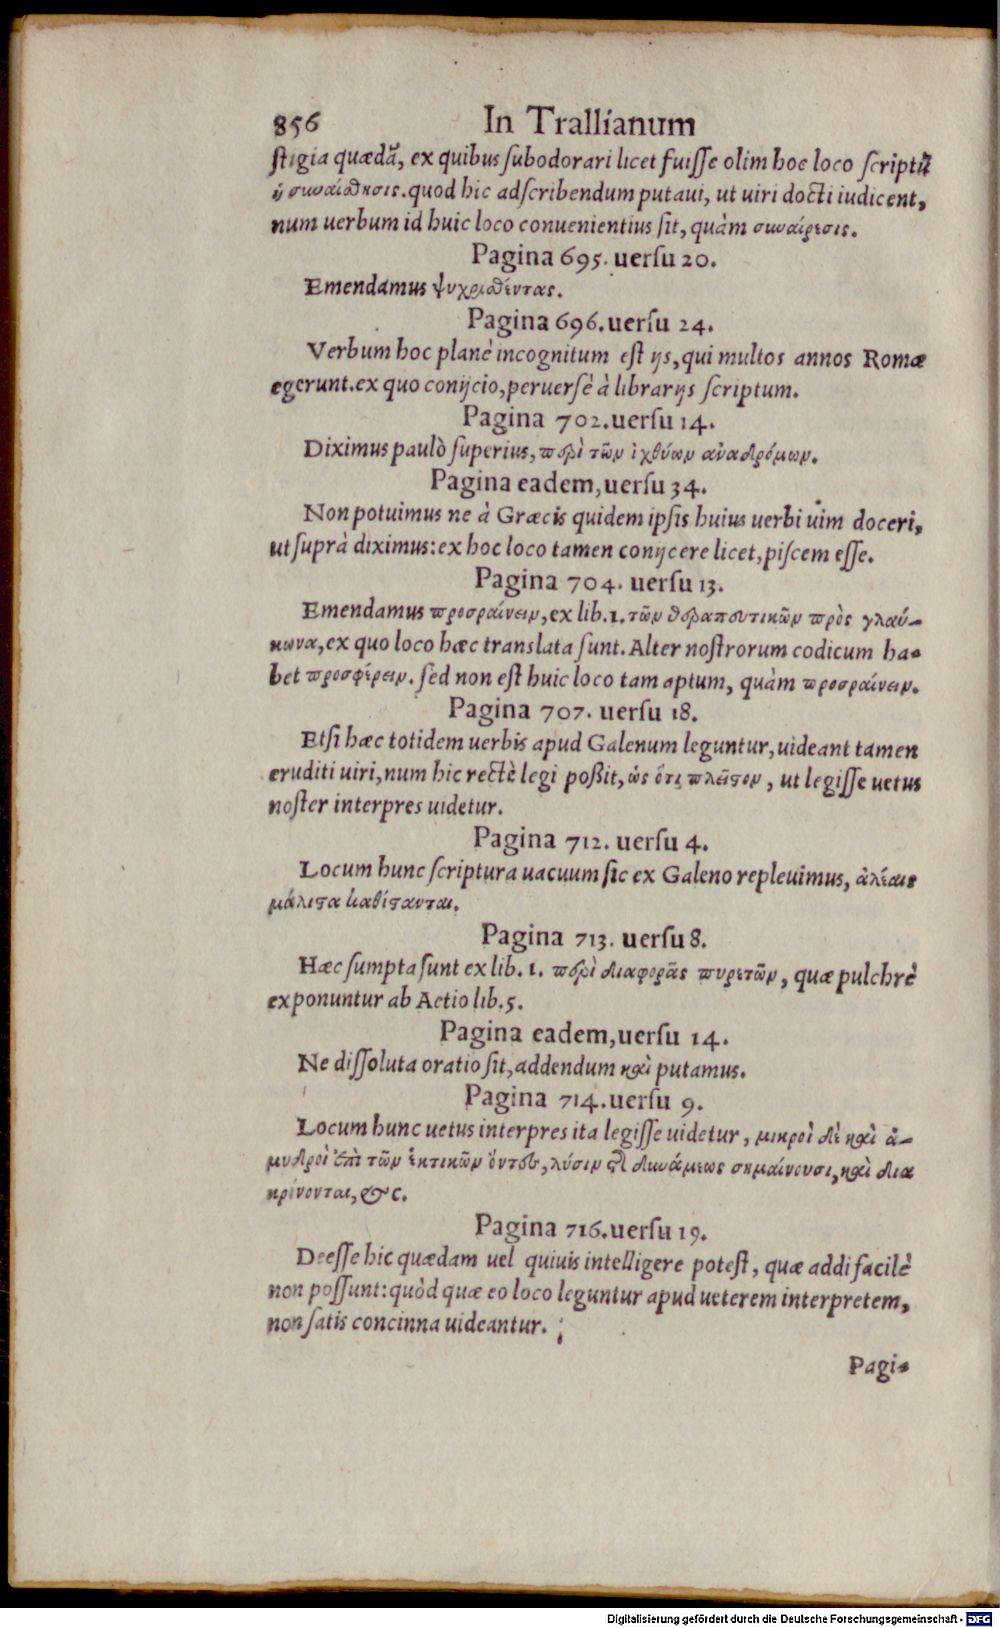 856 In Trallianum
stigia quædã, ex quibus subodorari licet fuisse olim hoc loco scriptũ
ἢ συναίσθησις. quod hic adscribendum putaui, ut uiri docti iudicent,
num uerbum id huic loco conuenientius sit, quàm συναίρεσις.
Pagina 695. uersu 20.
Emendamus ψυχρισθέντας.
Pagina 696. uersu 24.
Verbum hoc planè incognitum est ijs, qui multos annos Romæ
egerunt. ex quo conijcio, peruersè à librarijs scriptum.
Pagina 702. uersu 14.
Diximus paulò superius, περὶ τῶν ἰχθύων ἀναδρόμων.
Pagina eadem, uersu 34.
Non potuimus ne à Græcis quidem ipsis huius uerbi uim doceri,
ut suprà diximus: ex hoc loco tamen conijcere licet, piscem esse.
Pagina 704. uersu 13.
Emendamus προσραίνειν, ex lib. 1. τῶν θεραπευτικῶν πρὸς γλαύ-
κωνα, ex quo loco hæc translata sunt. Alter nostrorum codicum ha-
bet προσφέρειν. sed non est huic loco tam aptum, quàm προσραίνειν.
Pagina 707. uersu 18.
Etsi hæc totidem uerbis apud Galenum leguntur, uideant tamen
eruditi uiri, num hic rectè legi poßit, ὡς ὅτι πλεῖστον, ut legisse uetus
noster interpres uidetur.
Pagina 712. uersu 4.
Locum hunc scriptura uacuum sic ex Galeno repleuimus, ἀλέαις
μάλιστα καθίστανται.
Pagina 713. uersu 8.
Hæc sumpta sunt ex lib. 1. περὶ διαφορᾶς πυρετῶν, quæ pulchrè
exponuntur ab Aetio lib. 5.
Pagina eadem, uersu 14.
Ne dissoluta oratio sit, addendum καὶ putamus.
Pagina 714. uersu 9.
Locum hunc uetus interpres ita legisse uidetur, μικροὶ δὲ καὶ ἀ-
μυδροὶ ἐπὶ τῶν ἑκτικῶν ὄντες, λύσιν τῆς δυνάμεως σημαίνουσι, καὶ δια
κρίνονται, &c.
Pagina 716. uersu 19.
Deesse hic quædam uel quiuis intelligere potest, quæ addi facilè
non possunt: quòd quæ eo loco leguntur apud ueterem interpretem,
non satis concinna uideantur.
Pagi-
Digitalisierung gefördert durch die Deutsche Forschungsgemeinschaft - DFG